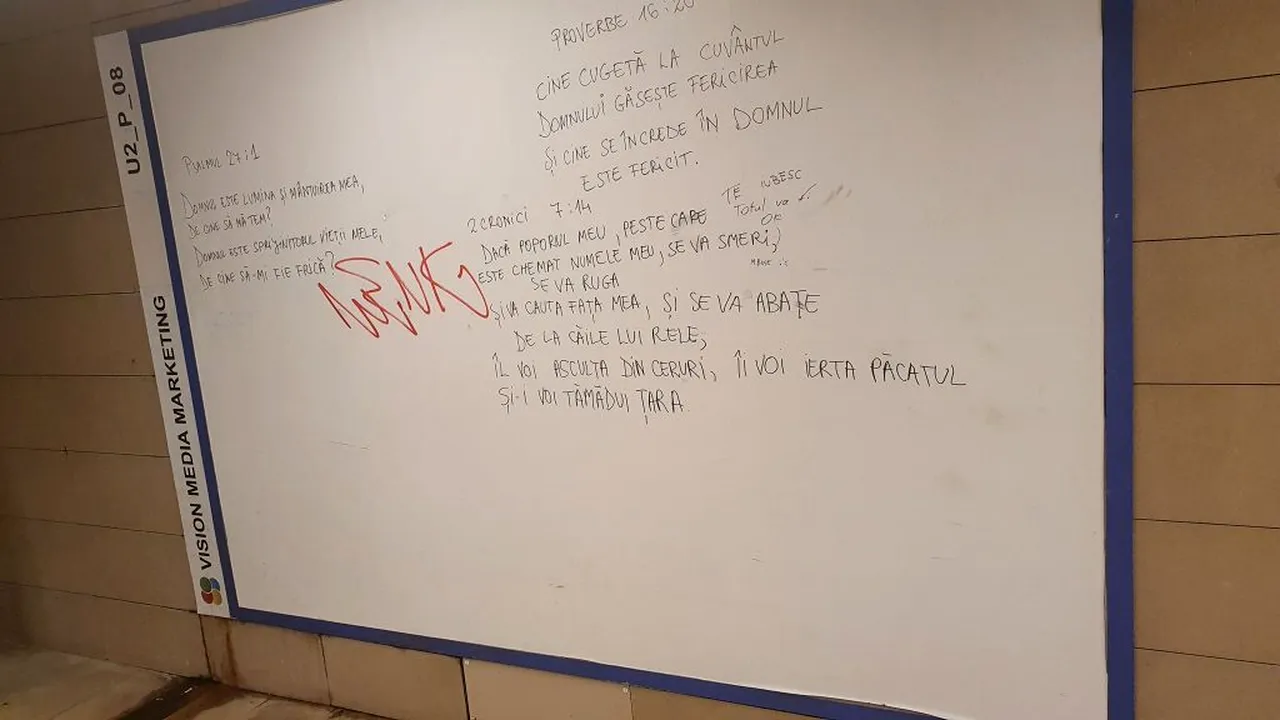 U2_P_08
VISION MEDIA MARKETING
PSALMUL 27:1
DOMNUL ESTE LUMINA ȘI MÂNTUIREA MEA,
DE CINE SĂ MĂ TEM?
DOMNUL ESTE SPRIJINITORUL VIEȚII MELE,
DE CINE SĂ-MI FIE FRICĂ?
PROVERBE 16:20
CINE CUGETĂ LA CUVÂNTUL
DOMNULUI GĂSEȘTE FERICIREA
ȘI CINE SE ÎNCREDE ÎN DOMNUL
ESTE FERICIT.
2 CRONICI 7:14
DACĂ POPORUL MEU, PESTE CARE
ESTE CHEMAT NUMELE MEU, SE VA SMERI,
SE VA RUGA
ȘI VA CAUTA FAȚA MEA, ȘI SE VA ABATE
DE LA CĂILE LUI RELE,
ÎL VOI ASCULTA DIN CERURI, ÎI VOI IERTA PĂCATUL
ȘI-I VOI TĂMĂDUI ȚARA.
TE IUBESC
Totul va fi
OK